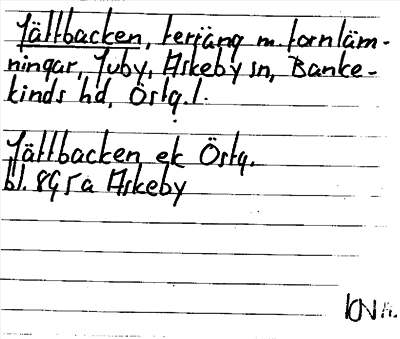 Jättbacken, terräng m. fornläm-
ningar, Ljuby, Askeby sn, Banke-
kinds hd, Östg. l.
Jättbacken ek Östg.
bl. 8G 5a Askeby